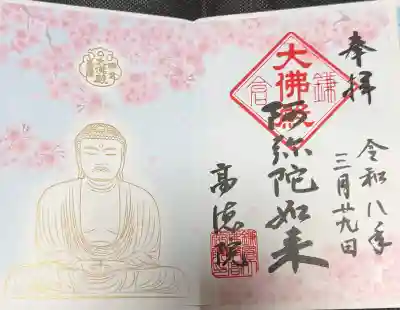 奉拝
令和八年
三月廿九日
鎌倉
大佛殿
阿弥陀如来
高徳院